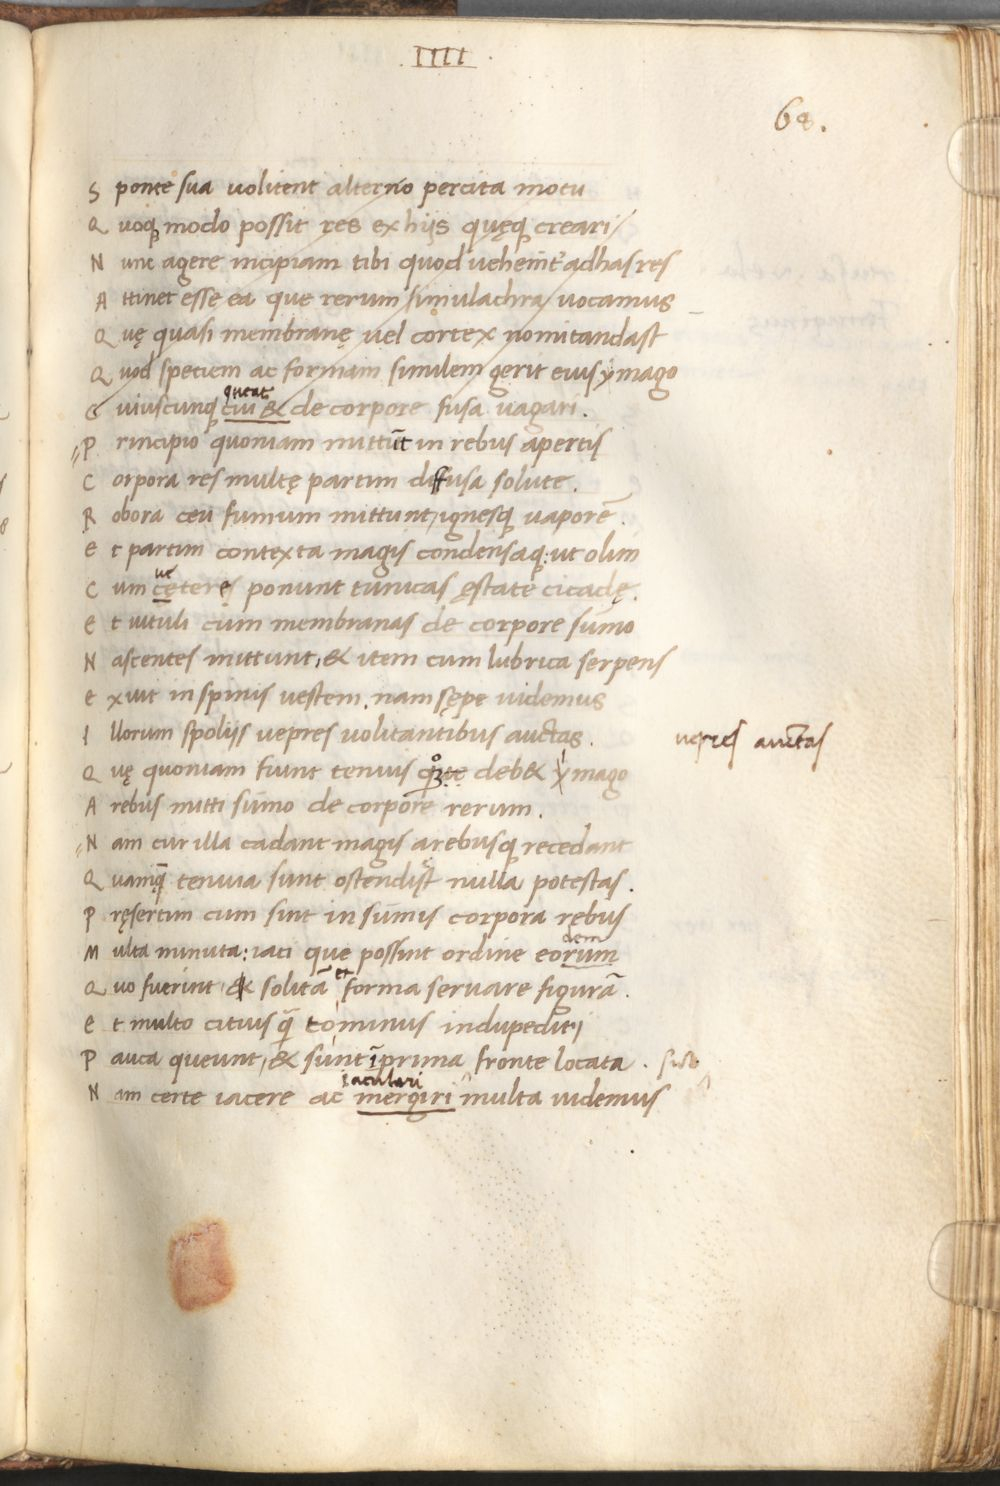 . IIII .
68.
S ponte sua uolitent alterno percita motu
Q uoq modo possit res ex hijs quęq creari
N unc agere incipiam tibi quod uehemēt adhas res
A ttinet esse ea que rerum simulachra uocamus
Q vę quasi membranę uel cortex nomitandast
Q uod speciem ac formam similem gerit eius ymago
C uiuscunq cui & de corpore fusa uagari .
P rincipio quoniam mittūt in rebus apertis
C orpora res multę partim diffusa solute .
R obora ceu fumum mittunt, ignesq uaporē .
E t partim contexta magis condensaq: ut olim
C um cęteręs ponunt tunicas ęstate cicadę .
E t uituli cum membranas de corpore sumo
N ascentes mittunt, & item cum lubrica serpens
E xuit in spinis uestem . nam sępe uidemus
I llorum spolijs uepres uolitantibus auctas . uepres auctas
Q vę quoniam fiunt tenuis deb& ymago
A rebus mitti sūmo de corpore rerum .
N am cur illa cadant magis a rebusq recedant
Q uamq̄ tenuia sunt ostendist nulla potestas .
P ręsertim cum sint in sūmis corpora rębus
dem
M ulta minuta: iaci que possint ordine eorum
Q uo fuerint & solitā et forma seruare figurā .
E t multo citius q̄ to minus indupediri
P auca queunt, & sunt ī prima fronte locata .
iaculari
N am certe iacere ac mergiri multa uidemus